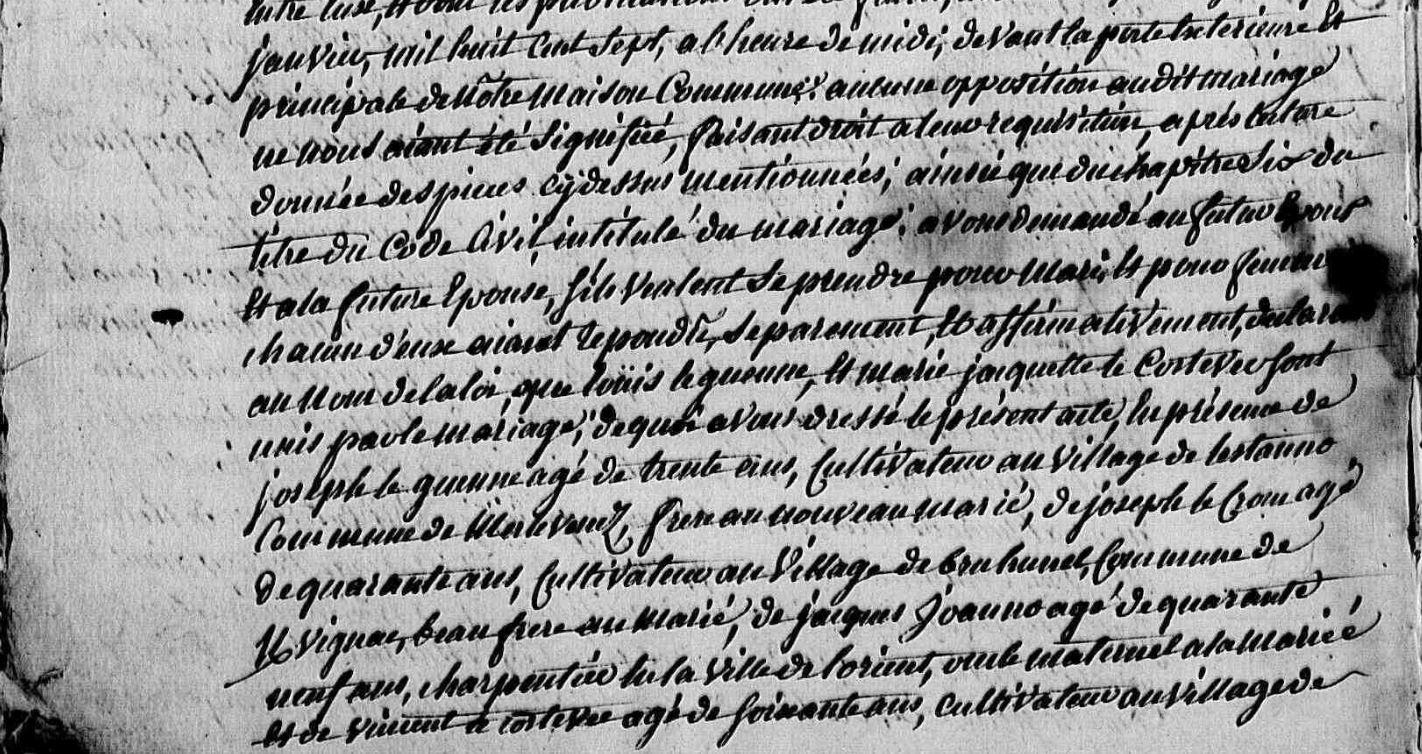 janvier, mil huit cent sept, a l'heure de midi, devant la porte Exterieure Et
principale de Nôtre Maison Commune: aucune opposition audit mariage
ne nous aiant été Signifiée, faisant droit a leur requisition, après lecture
donnée des pieces cydessus mentionnées, ainsi que du chapitre Six du
titre du Code Civil, intitulé du mariage: avons demandé au futur Epoux
Et a la future Epouse, s'ils veulent Se prendre pour Mari, Et pour femme
chacun d'eux aiant repondu, Separement, Et affirmativement, declarons
au nom de la loi, que loüis le guenne, Et marie jacquette le Cortevec sont
unis par le mariage; de quoi avons dressé le présent acte, En présence de
joseph le guenne agé de trente ans, Cultivateur au Village de
Commune de frere au nouveau marié, de joseph le Crom agé
de quarante ans, Cultivateur au Village de Commune de
beau frere au Marié, de jacques Joanno agé de quarante
neuf ans, charpentier de la ville de l'orient, oncle maternel a la Mariée
Et de Vincent le cortevec agé de soixante ans, Cultivateur au village de